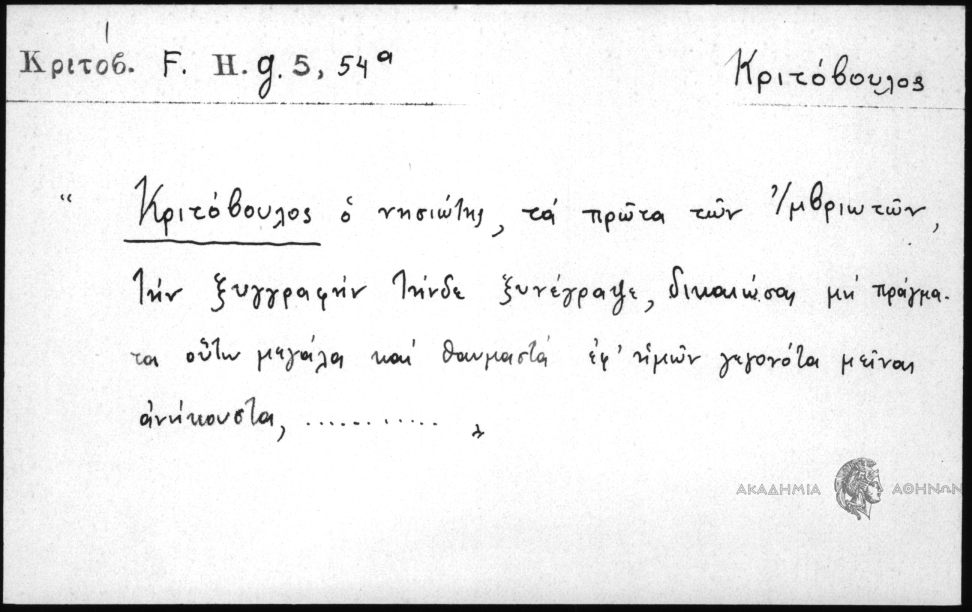 Κριτόβ. F. H. g. 5, 54ᵃ
Κριτόβουλος
“ Κριτόβουλος ὁ νησιώτης, τά πρῶτα τῶν Ἰμβριωτῶν,
τήν ξυγγραφήν τήνδε ξυνέγραψε, δικαιώσας μή πράγμα-
τα οὕτω μεγάλα καί θαυμαστά ἐφ’ ἡμῶν γεγονότα μεῖναι
ἀνήκουστα, ............ „
ΑΚΑΔΗΜΙΑ ΑΘΗΝΩΝ